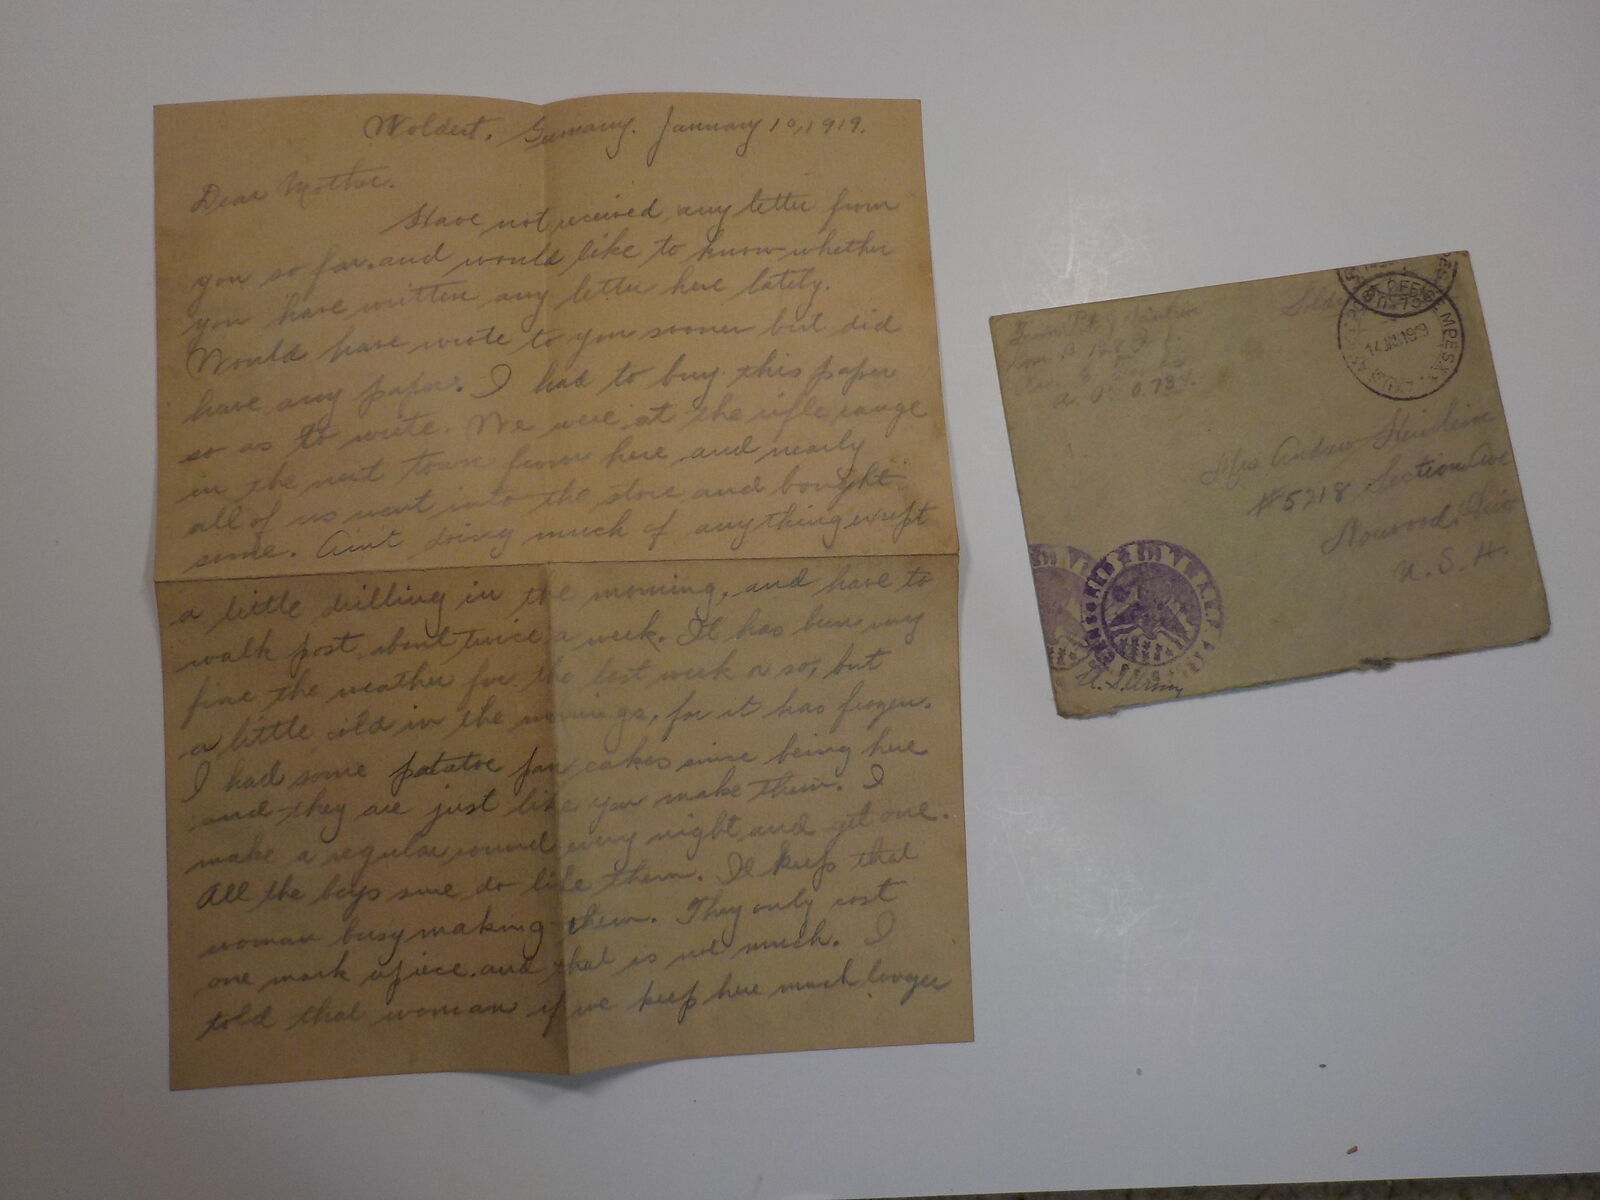 Woldert, Germany. January 10, 1919.
Dear Mother.
Have not received any letter from
you so far, and would like to know whether
you have written any letter here lately.
Would have wrote to you sooner but did
have any paper. I had to buy this paper
so as to write. We were at the rifle range
in the next town from here and nearly
all of us went into the store and bought
some. Ain't doing much of anything except
a little drilling in the morning, and have to
walk post, about twice a week. It has been very
fine the weather for the last week or so, but
a little cold in the mornings, for it has frozen.
I had some patatoe pan cakes since being here
and they are just like you make them. I
make a regular round every night and get one.
All the boys sure do like them. It keeps that
woman busy making them. They only cost
one mark apiece, and that is not much. I
told that woman if we keep here much longer
From Pvt J
Com. B. 128
A. P. O. 734.
Mrs Andrew Heinline
#5218 Section Ave
Norwood, Ohio
U. S. A.
14 JAN 1919
CENSORED
A.E.F.
U. S. Army